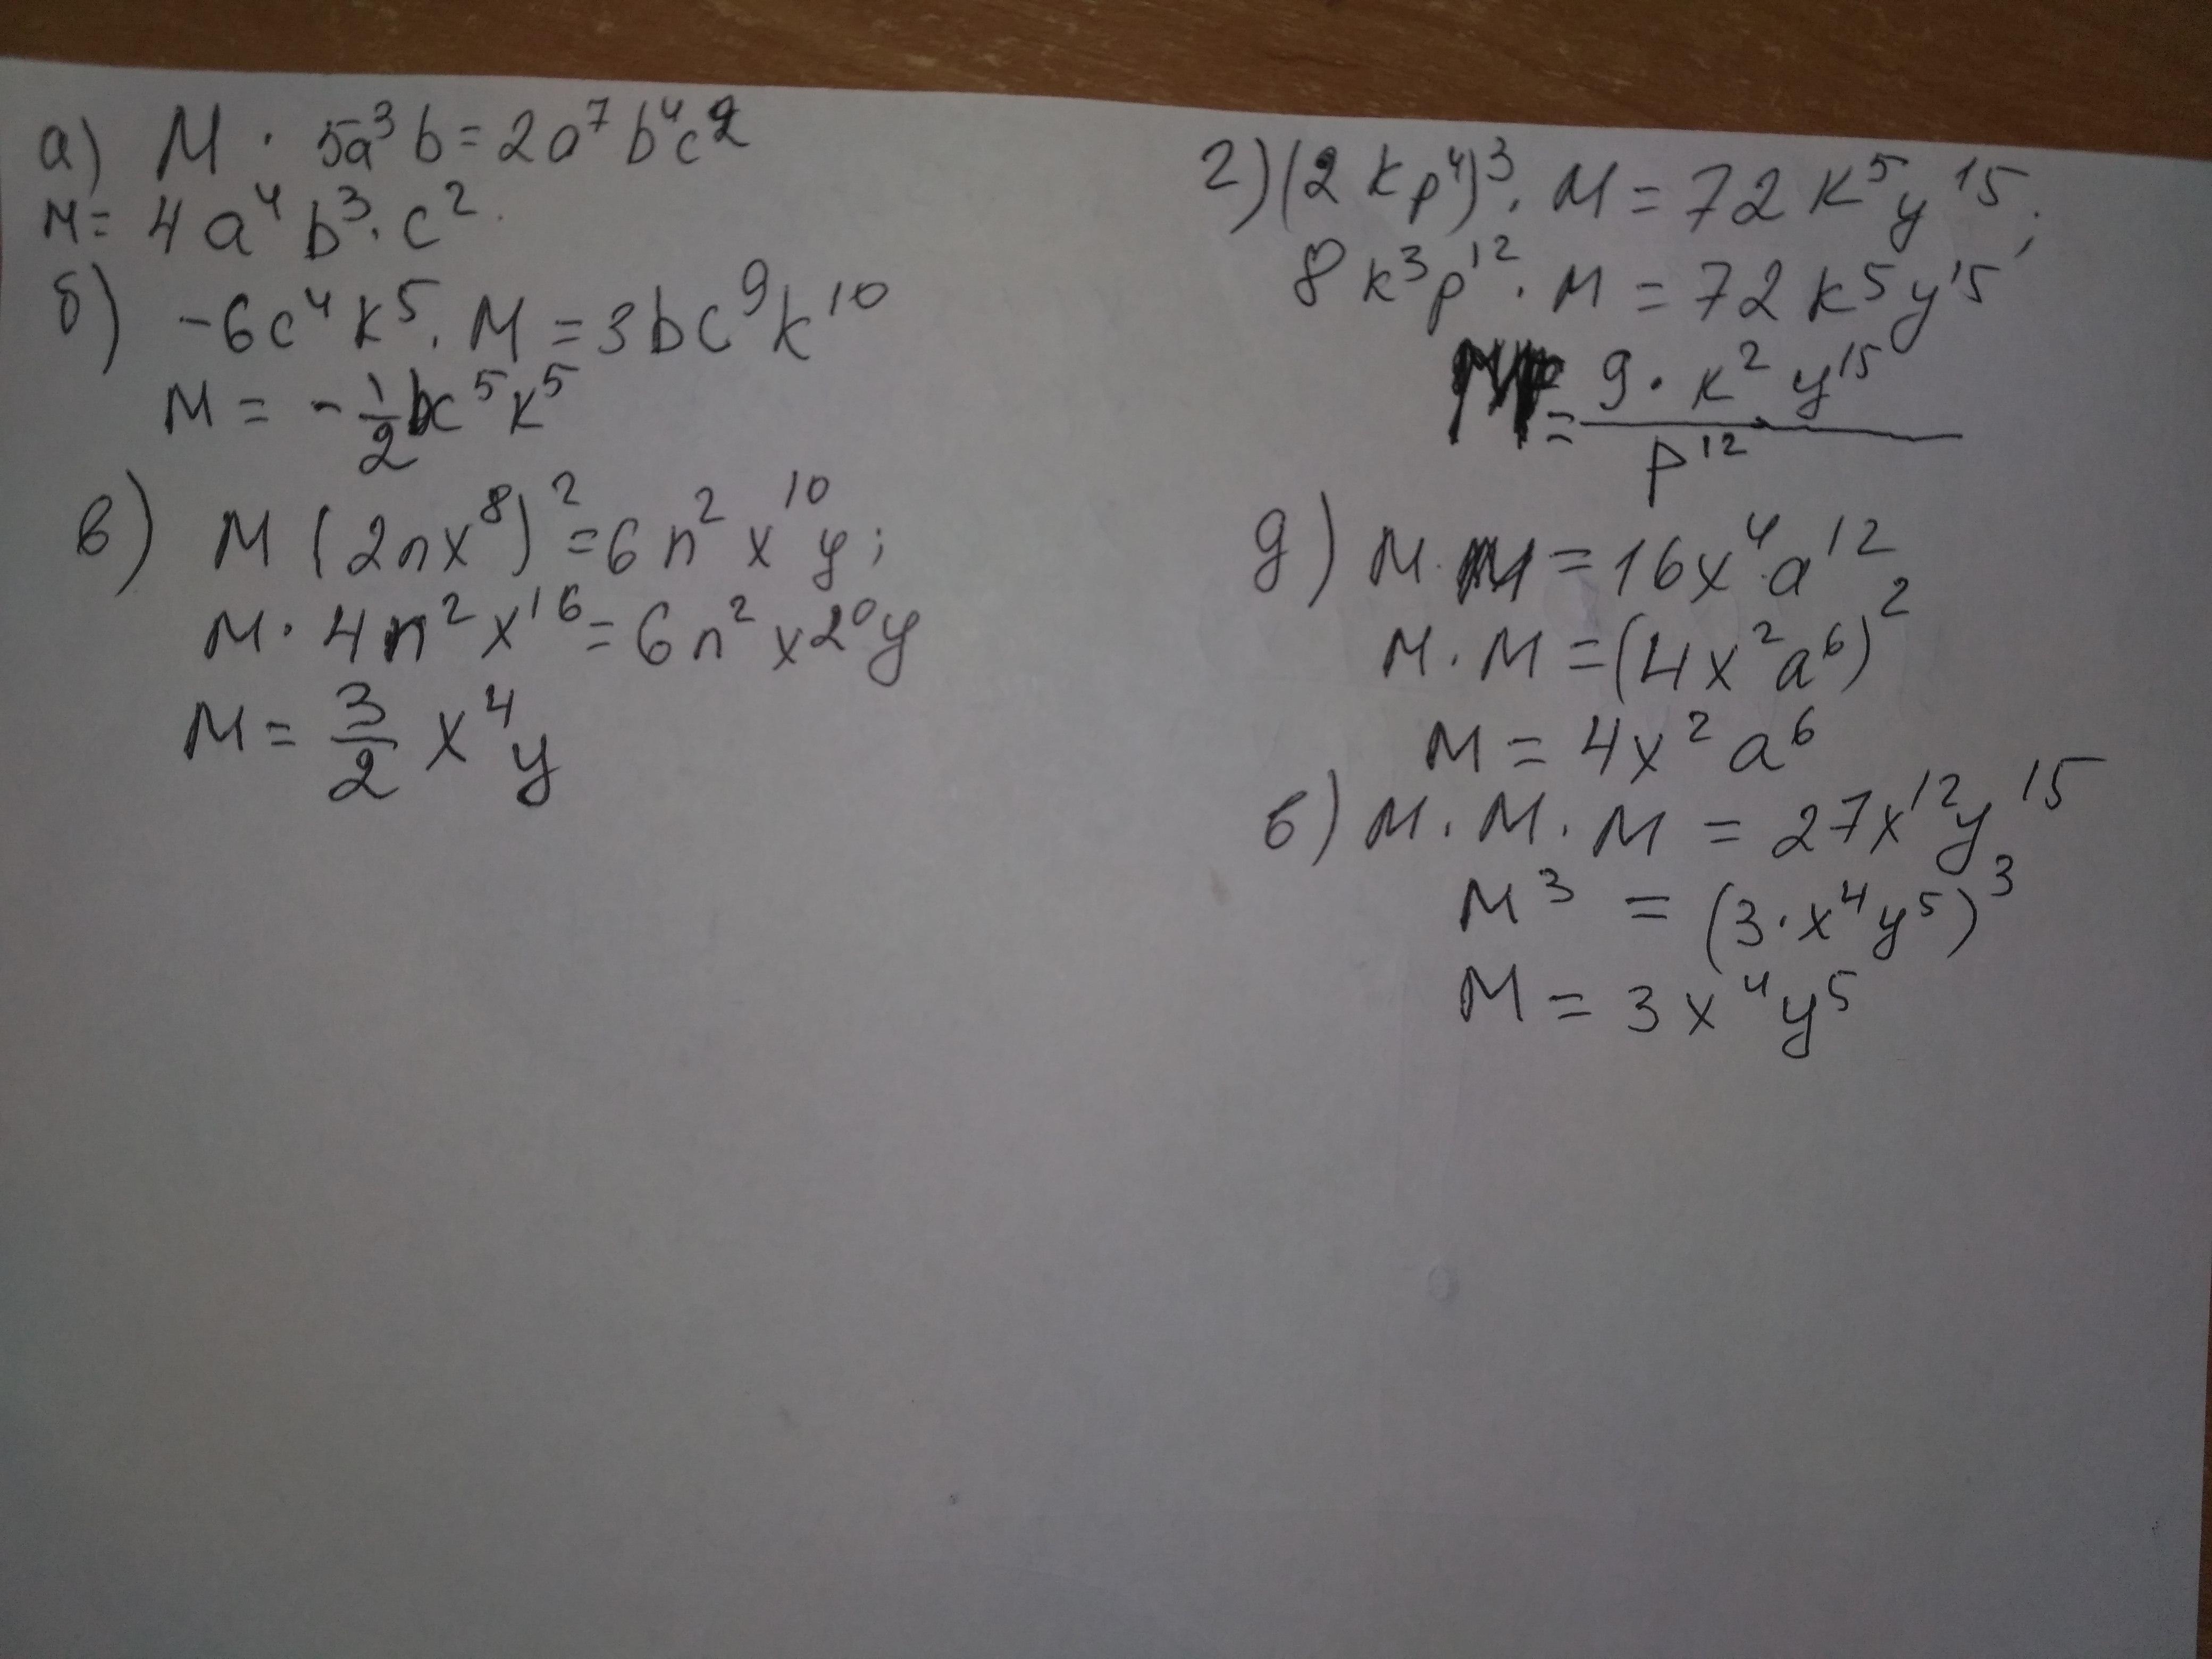 а) M · 5a³b = 2a⁷b⁴c²
M = 4a⁴b³·c²
б) -6c⁴k⁵ · M = 3bc⁹k¹⁰
M = -1/2bc⁵k⁵
в) M (2nx⁸)² = 6n²x¹⁰y;
M · 4n²x¹⁶ = 6n²x20y
M = 3/2 x⁴y
г) (2kp⁴)³ · M = 72k⁵y¹⁵;
8k³p¹² · M = 72k⁵y¹⁵
M = 9·k²y¹⁵/p¹²
д) M · M = 16x⁴a¹²
M · M = (4x²a⁶)²
M = 4x²a⁶
е) M · M · M = 27x¹²y¹⁵
M³ = (3·x⁴y⁵)³
M = 3x⁴y⁵